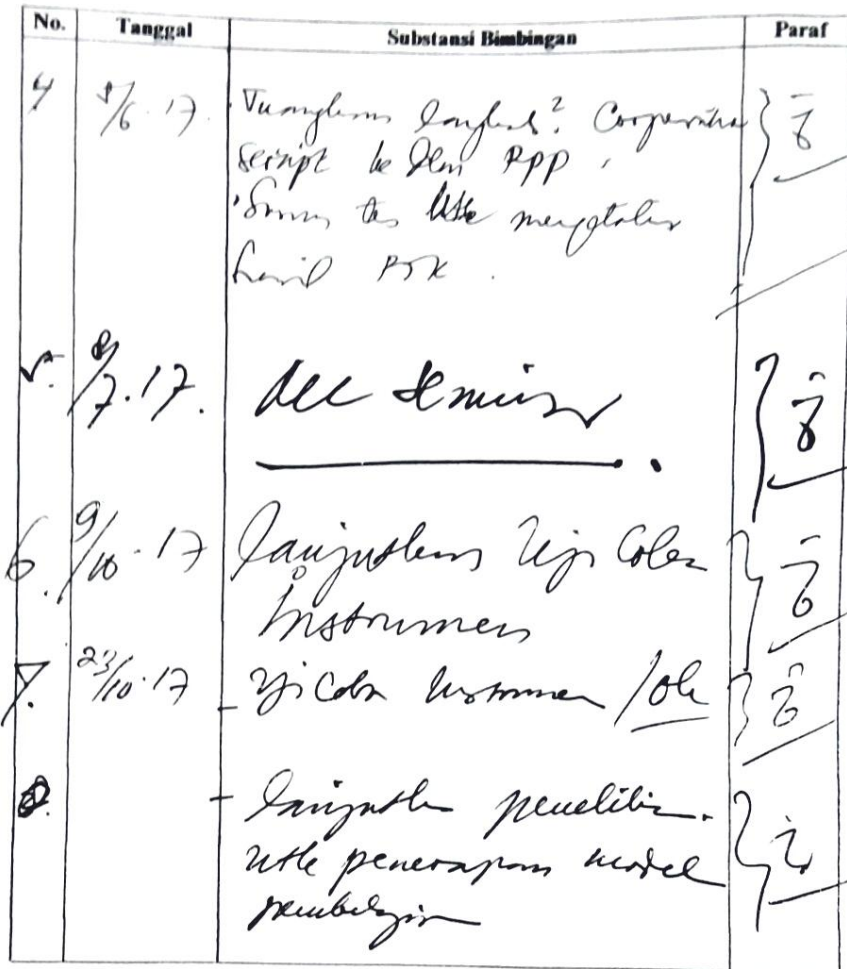 No. Tanggal Substansi Bimbingan Paraf
4 8/6 17. Tuangkan langkah². Cooperative
Script ke dlm RPP.
Susun tes utk mengetahui
hasil PTK.
5. 8/7.17. Acc Seminar.
6. 9/10.17 Lanjutkan Uji Coba
Instrumen
7. 23/10.17 - Uji Coba Instrumen /ok
- lanjutkan penelitian.
utk penerapan model
pembelajaran